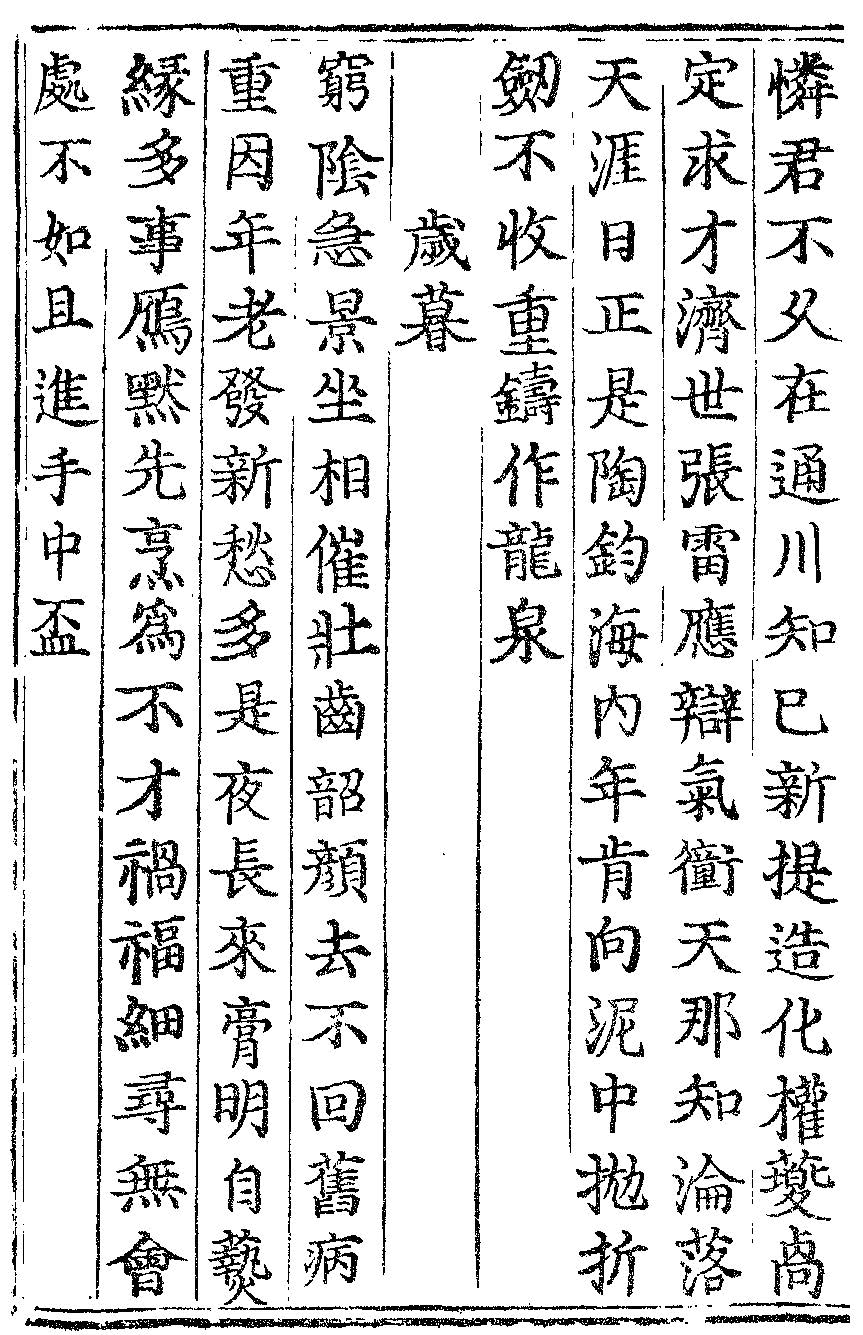 憐君不乆在通川知已新提造化權夔卨
定求才濟世張雷應辯氣衝天那知淪落
天涯日正是陶鈞海內年肯向泥中拋折
劒不收重鑄作龍泉
歲暮
窮陰急景坐相催壯齒韶顏去不回舊病
重因年老發新愁多是夜長來膏明自爇
緣多事鴈默先烹爲不才禍福細尋無會
處不如且進手中盃